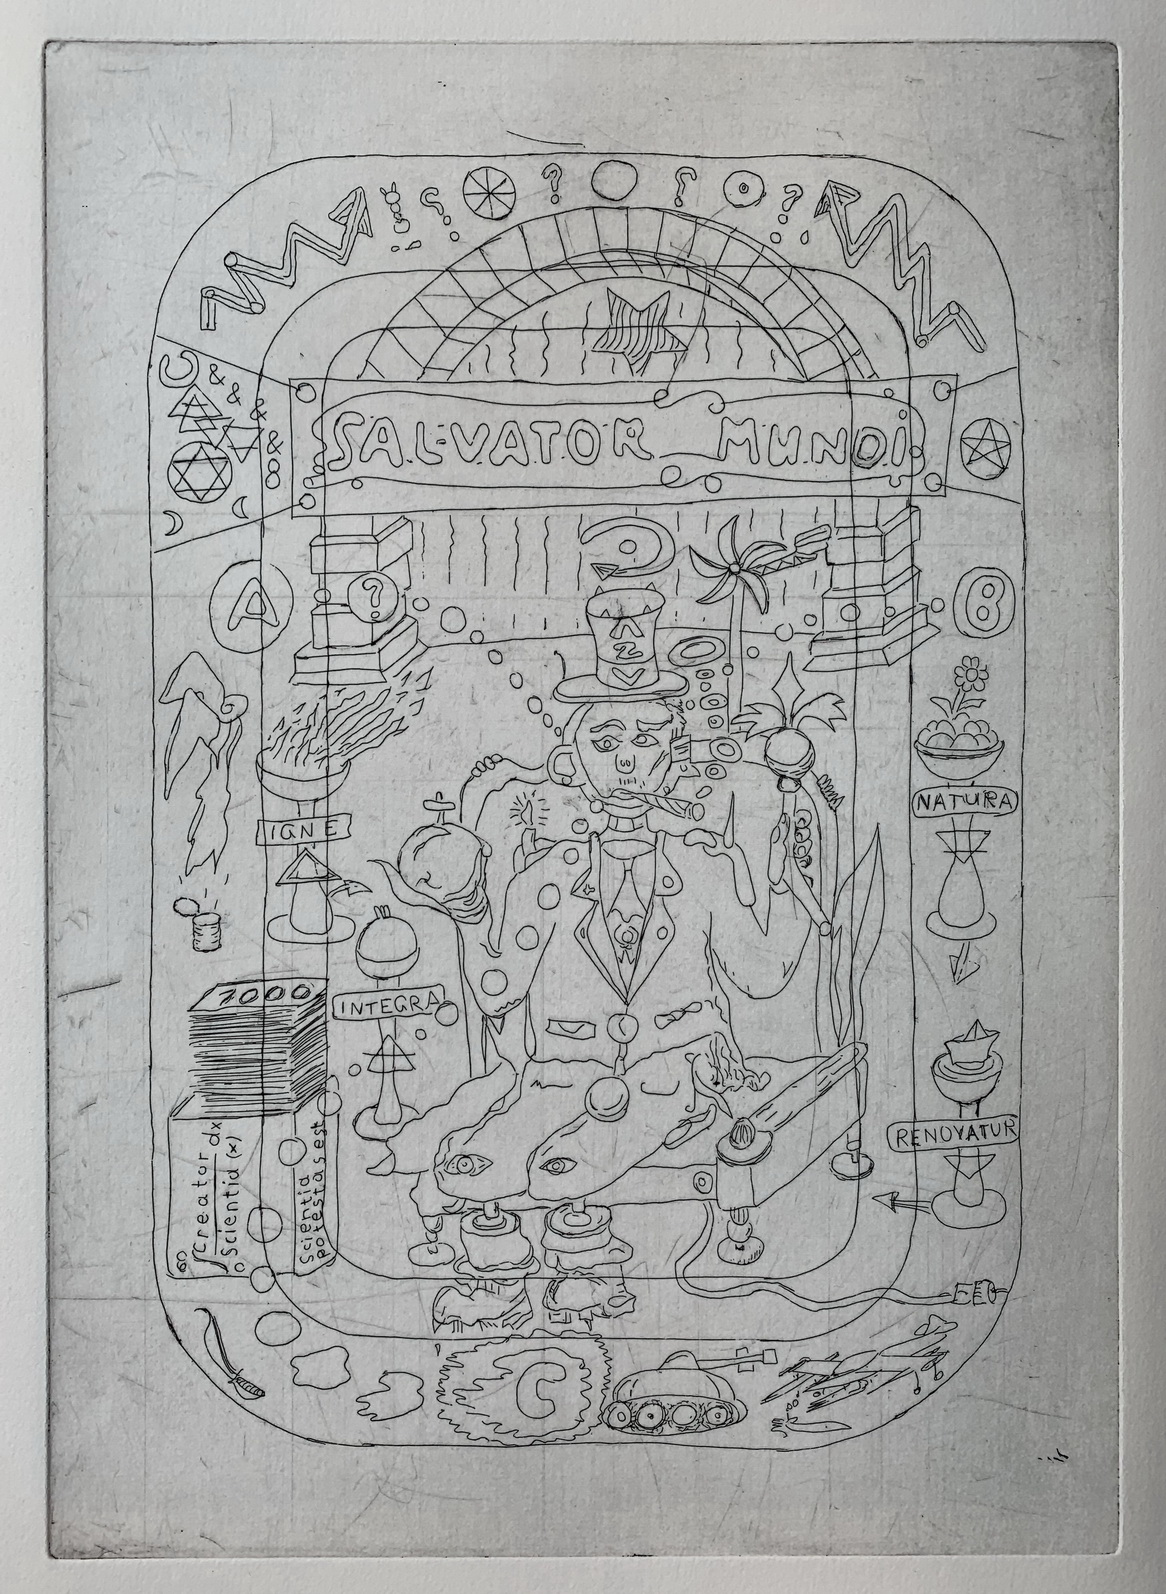 ? ? ? ? ?
& & & & 8
SALVATOR MUNDI
A
?
B
2
NATURA
IGNE
INTEGRA
1000
RENOVATUR
∫Creator dx
Scientia (x)
Scientia
potestas est
C